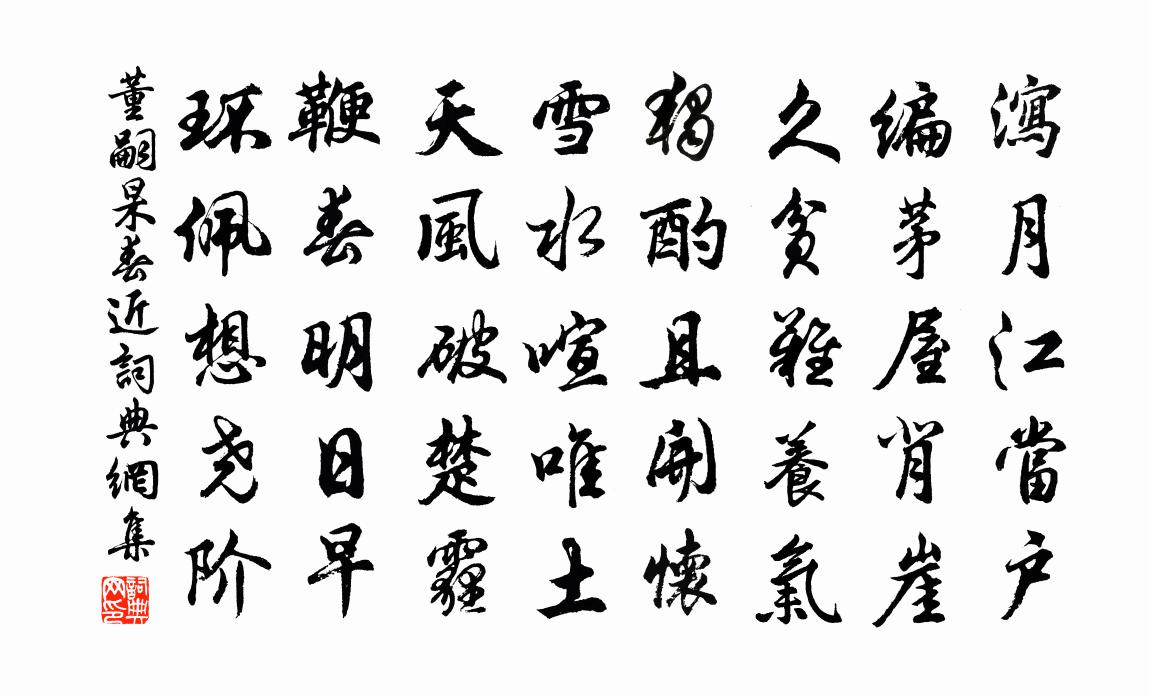 瀉月江當户
編茅屋背崖
久貧難養氣
獨酌且開懷
雪水喧唯土
天風破楚霾
鞭春明日早
环佩想尧阶
董嗣杲春近詞典網集
詞典网印